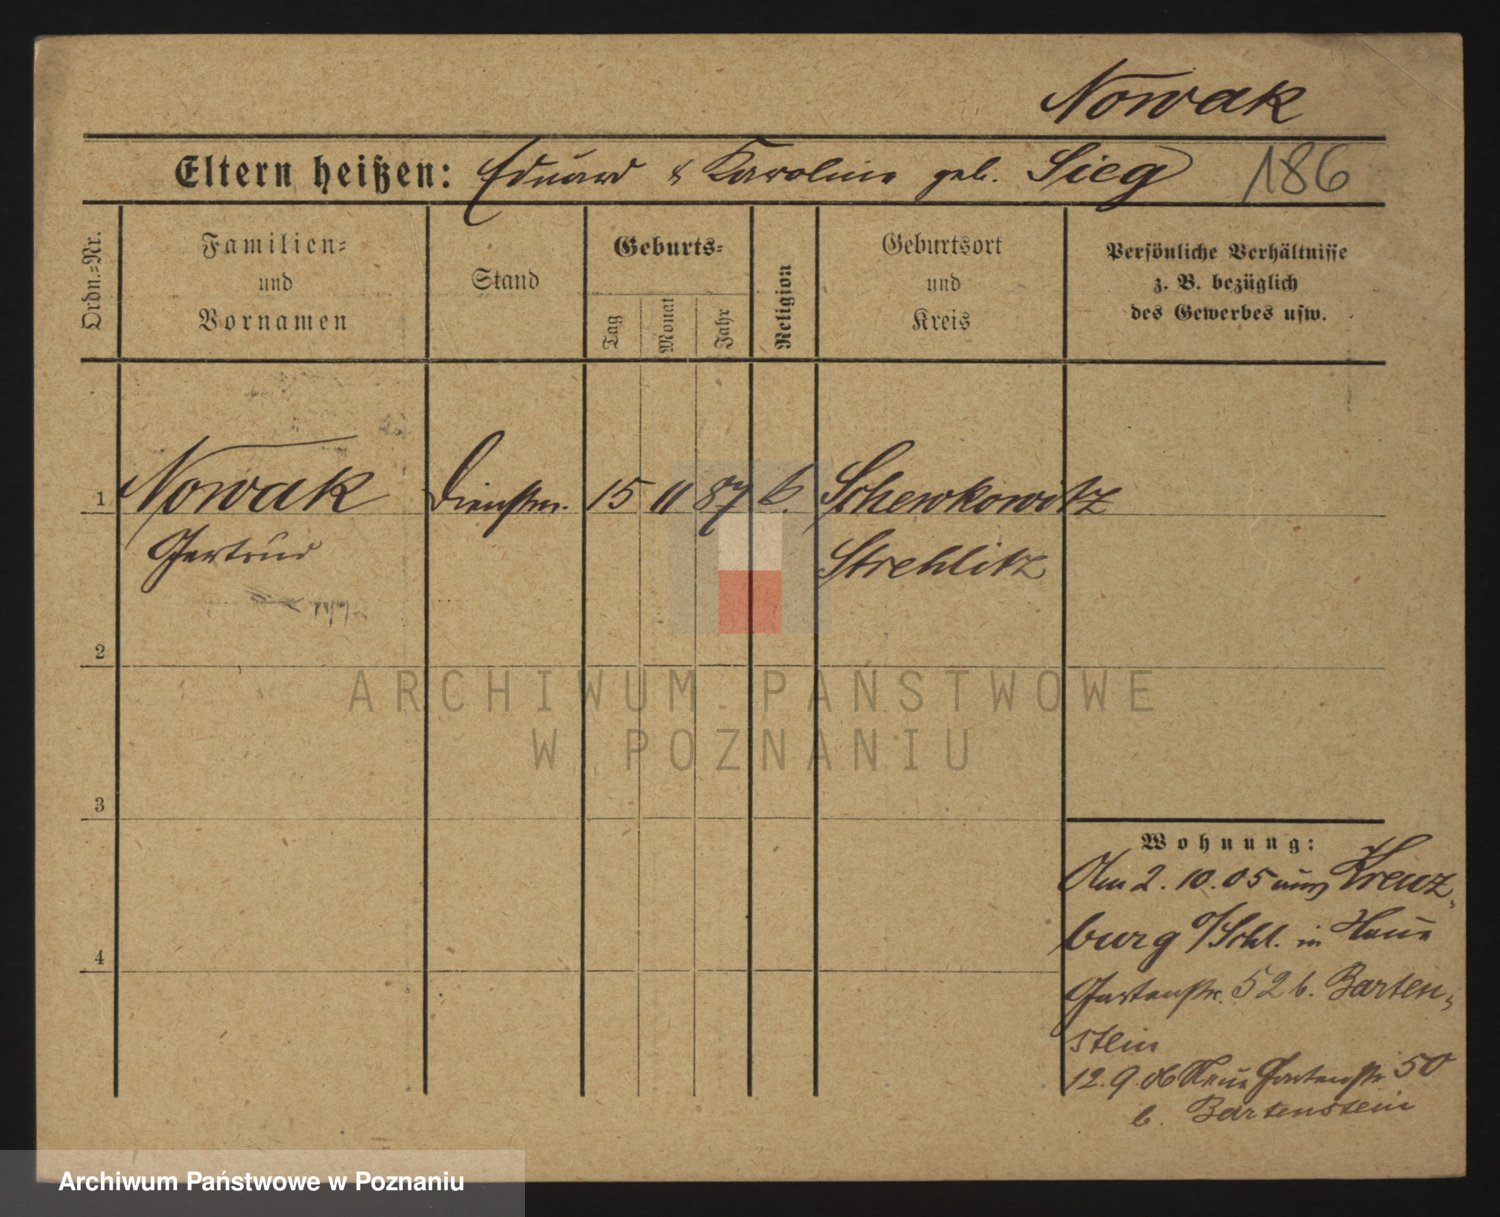 Nowak
Eltern heißen: Eduard & Karoline geb. Sieg 186
Ordn.-Nr.
Familien-
und
Vornamen
Stand
Geburts-
Tag
Monat
Jahr
Religion
Geburtsort
und
Kreis
Persönliche Verhältnisse
z. B. bezüglich
des Gewerbes usw.
1 Nowak Dienstm. 15 11 87 k. Schewkowitz
Gertrud Strehlitz
2
ARCHIWUM PAŃSTWOWE
W POZNANIU
3
4
Wohnung:
Am 2. 10. 05 aus Kreuz-
burg o/Schl. in Neue
Gartenstr. 52 b. Barten-
stein
12. 9. 06 Neue Gartenstr 50
b. Bartenstein
Archiwum Państwowe w Poznaniu